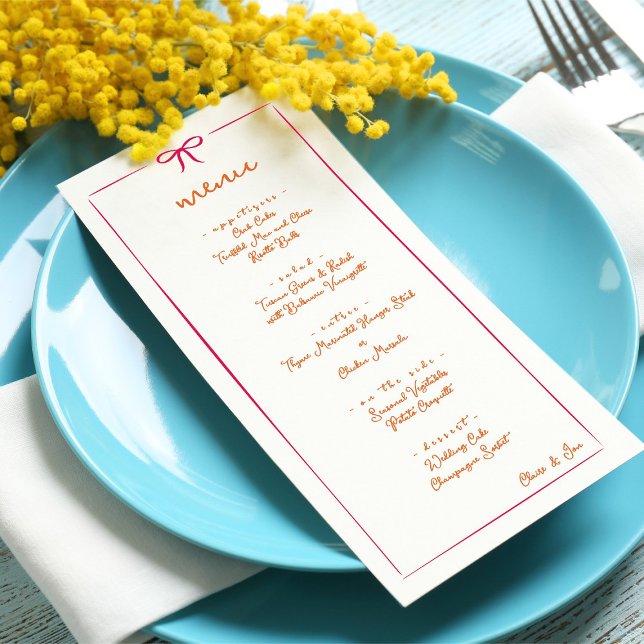 menu
- appetisers -
Crab Cakes
Truffled Mac and Cheese
Risotto Balls
- salad -
Tuscan Greens & Radish
with Balsamic Vinaigrette
- entree -
Thyme Marinated Hanger Steak
or
Chicken Marsala
- on the side -
Seasonal Vegetables
Potato Croquette
- dessert -
Wedding Cake
Champagne Sorbet
Claire & Jon